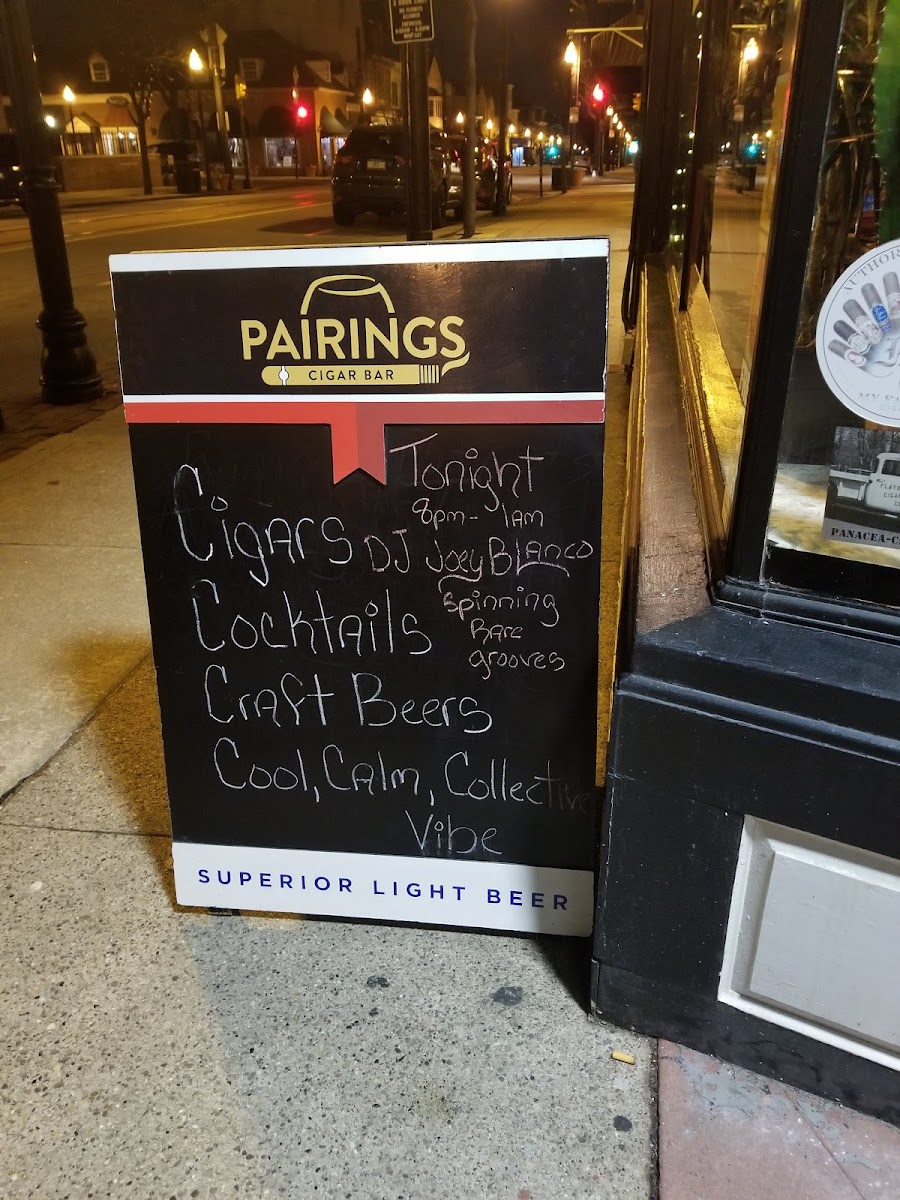 PAIRINGS
CIGAR BAR
Tonight
8pm - 1Am
Cigars
DJ Joey Blanco
Cocktails
spinning
Rare
grooves
Craft Beers
Cool, Calm, Collective
Vibe
SUPERIOR LIGHT BEER
AUTHOR
PANACEA-C